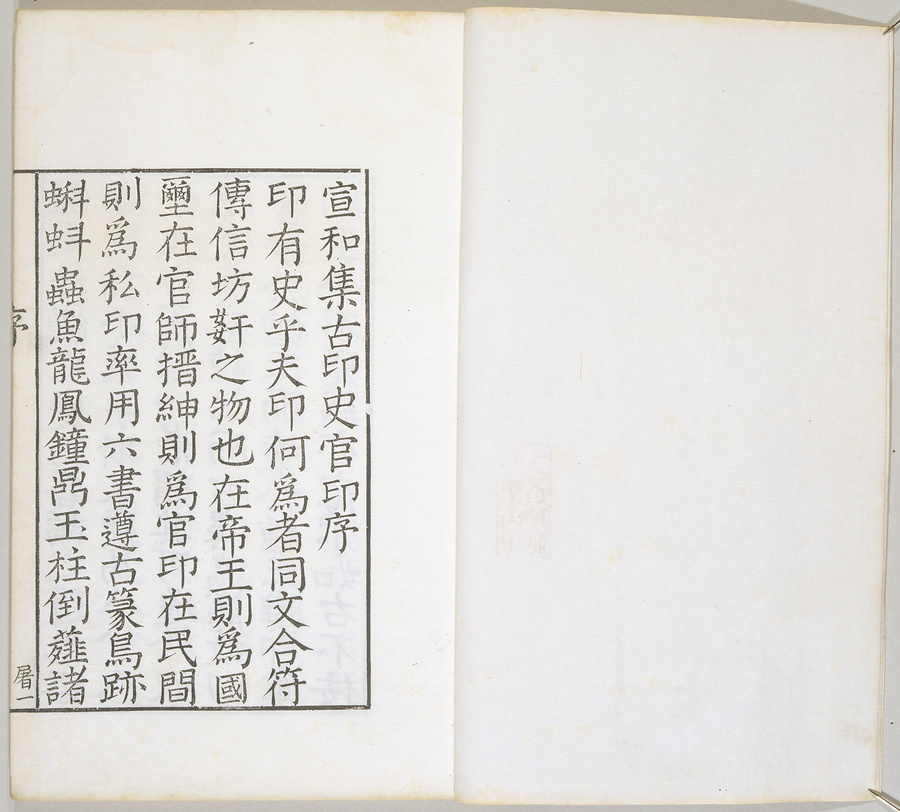 宣和集古印史官印序
印有史乎夫印何爲者同文合符
傳信坊姦之物也在帝王則爲國
璽在官師搢紳則爲官印在民間
則爲私印率用六書遵古篆鳥跡
蝌蚪蟲魚龍鳳鐘鼎玉柱倒薤諸
序
屠一